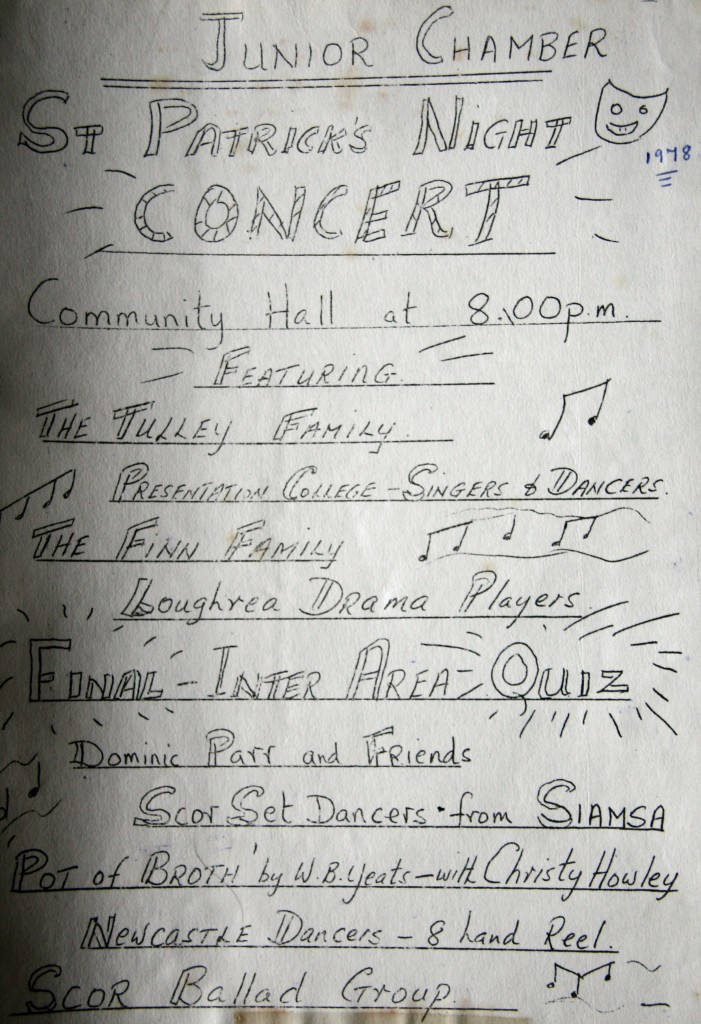 JUNIOR CHAMBER
ST PATRICK'S NIGHT
1978
CONCERT
Community Hall at 8.00p.m.
FEATURING
THE TULLEY FAMILY
PRESENTATION COLLEGE - SINGERS & DANCERS.
THE FINN FAMILY
Loughrea DRAMA Players
FINAL - INTER AREA QUIZ
Dominic Parr and FRiends
Scor Set Dancers from SIAMSA
POT of BROTH' by W.B. Yeats - with Christy Howley
NEWCASTLE Dancers - 8 hand Reel.
SCOR Ballad Group